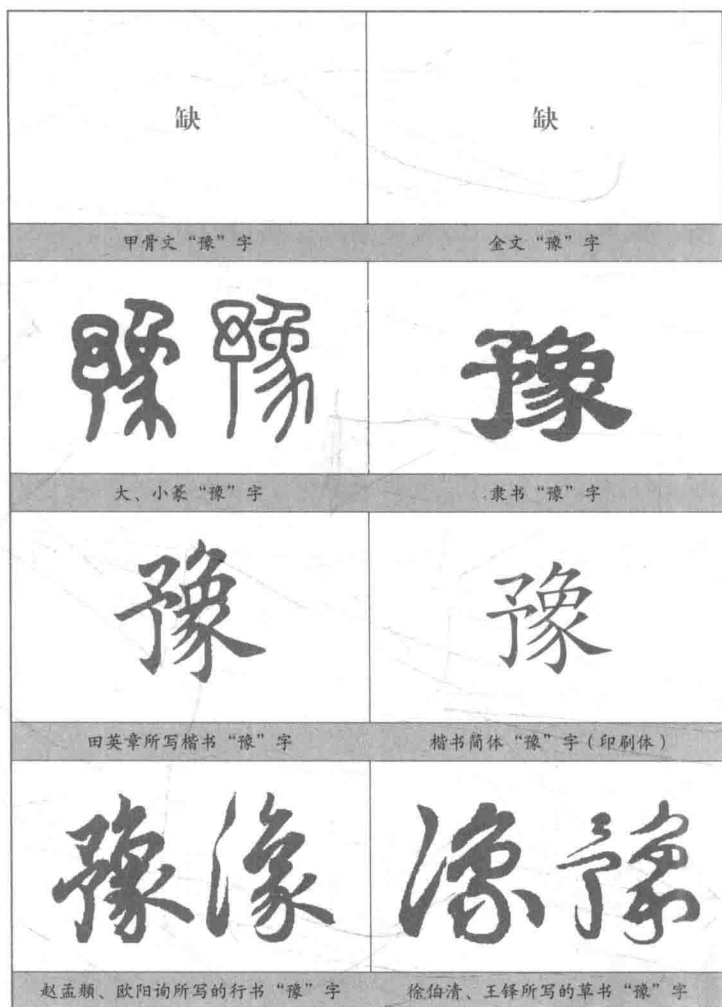 缺 缺
甲骨文“豫”字 金文“豫”字
豫 豫 豫
大、小篆“豫”字 隶书“豫”字
豫 豫
田英章所写楷书“豫”字 楷书简体“豫”字(印刷体)
豫 豫 豫 豫
赵孟頫、欧阳询所写的行书“豫”字 徐伯清、王铎所写的草书“豫”字